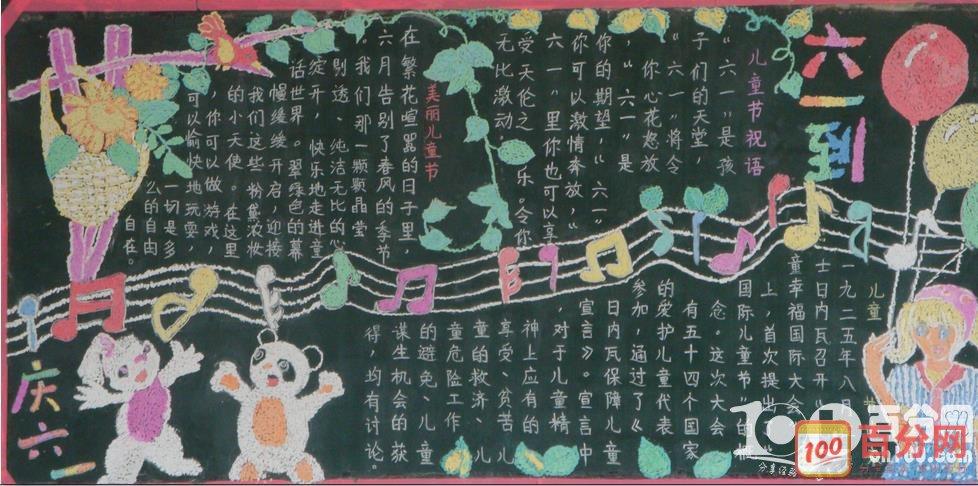 六一到
儿童节祝语
“六一”是孩
子们的天堂，
“六一”将令
你心花怒放
，“六一”是
你的期望，“六一”
你可以激情奔放，“
六一”里你也可以享
受天伦之乐。令你
无比激动。
美丽儿童节
在繁花喧嚣的日子里，
六月告别了春风的季节
，我们那一颗颗晶莹
剔透、纯洁无比的心
绽开，快乐地走进童
话世界。翠绿色的幕
幔缓缓开启，迎接
我们这些粉黛浓妆
的小天使。在这里
，你可以做游戏，
可以愉快地玩耍，
一切是多
么的自由
自在。
儿童
一九二五年八月
士日内瓦召开“
童幸福国际大会
上，首次提出“
国际儿童节”的
念。这次大会
有五十四个国家
的爱护儿童代表
参加，通过了《
日内瓦保障儿童
宣言》。宣言中
，对于儿童精
神上应有的
享受、贫苦儿
童的救济、儿
童危险工作
的避免、儿童
谋生机会的获
得，均有讨论。
庆六一
100
百分网